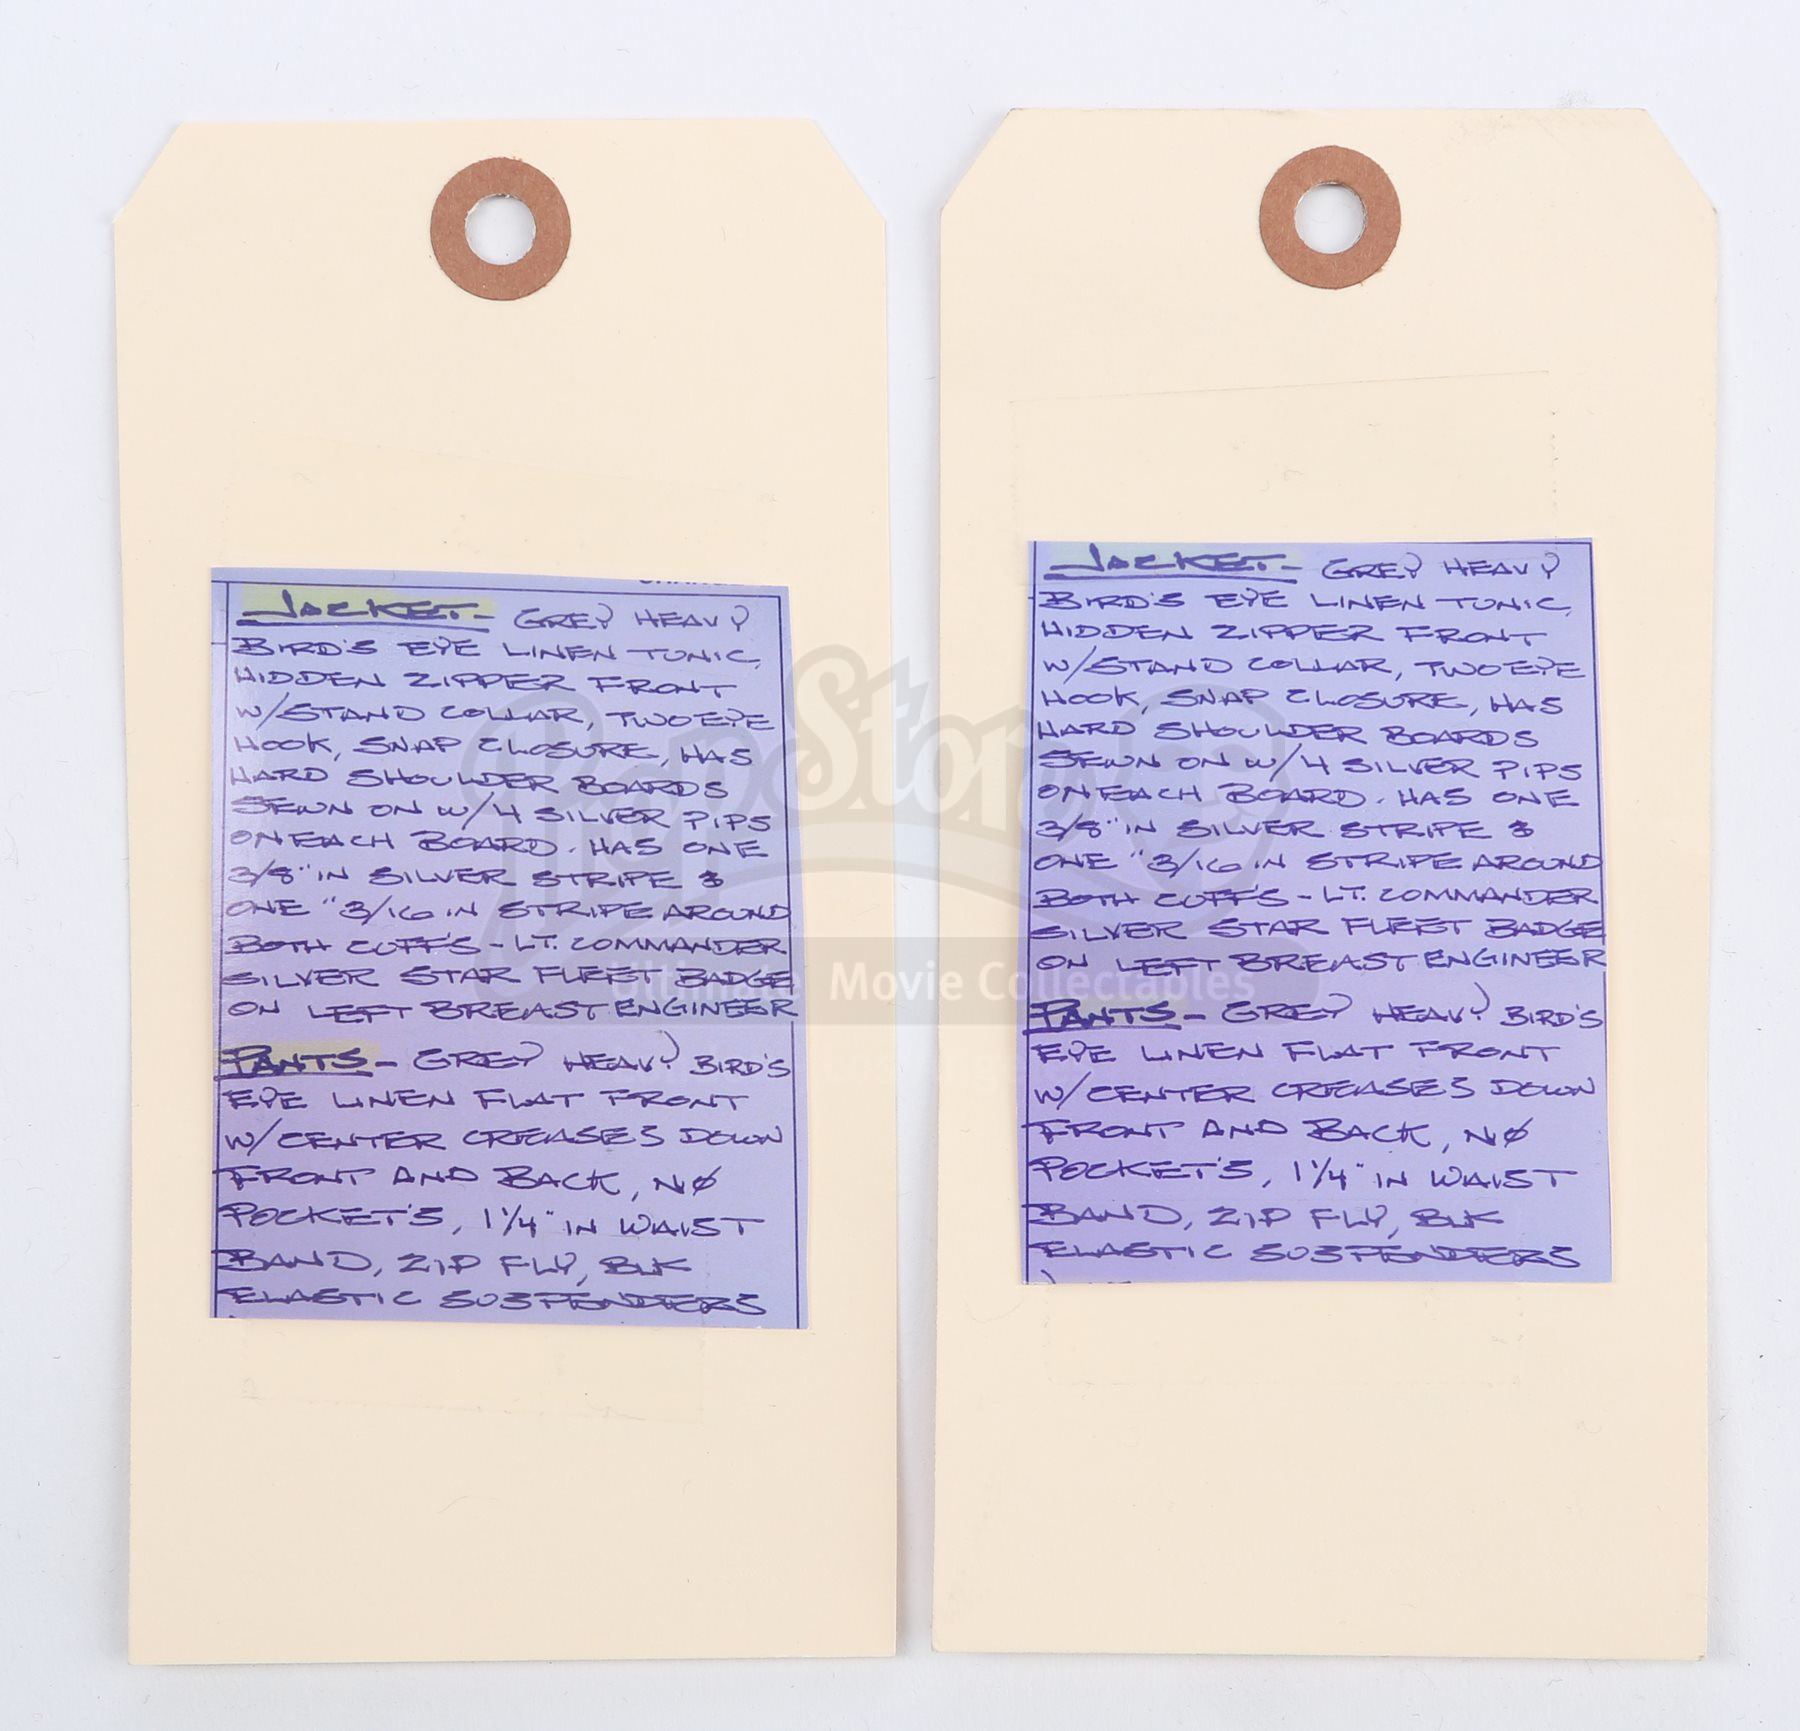 JACKET- GREY HEAVY
BIRD'S EYE LINEN TUNIC,
HIDDEN ZIPPER FRONT
W/STAND COLLAR, TWO EYE
HOOK, SNAP CLOSURE, HAS
HARD SHOULDER BOARDS
SEWN ON W/4 SILVER PIPS
ON EACH BOARD. HAS ONE
3/8" IN SILVER STRIPE &
ONE "3/16 IN STRIPE AROUND
BOTH CUFF'S - LT. COMMANDER
SILVER STAR FLEET BADGE
ON LEFT BREAST ENGINEER
PANTS- GREY HEAVY BIRD'S
EYE LINEN FLAT FRONT
W/CENTER CREASES DOWN
FRONT AND BACK, NØ
POCKET'S, 1 1/4" IN WAIST
BAND, ZIP FLY, BLK
ELASTIC SUSPENDERS
JACKET- GREY HEAVY
BIRD'S EYE LINEN TUNIC,
HIDDEN ZIPPER FRONT
W/STAND COLLAR, TWO EYE
HOOK, SNAP CLOSURE, HAS
HARD SHOULDER BOARDS
SEWN ON W/4 SILVER PIPS
ON EACH BOARD. HAS ONE
3/8" IN SILVER STRIPE &
ONE "3/16 IN STRIPE AROUND
BOTH CUFF'S - LT. COMMANDER
SILVER STAR FLEET BADGE
ON LEFT BREAST ENGINEER
PANTS- GREY HEAVY BIRD'S
EYE LINEN FLAT FRONT
W/CENTER CREASES DOWN
FRONT AND BACK, NØ
POCKET'S, 1 1/4" IN WAIST
BAND, ZIP FLY, BLK
ELASTIC SUSPENDERS
PropStore
Ultimate Movie Collectables